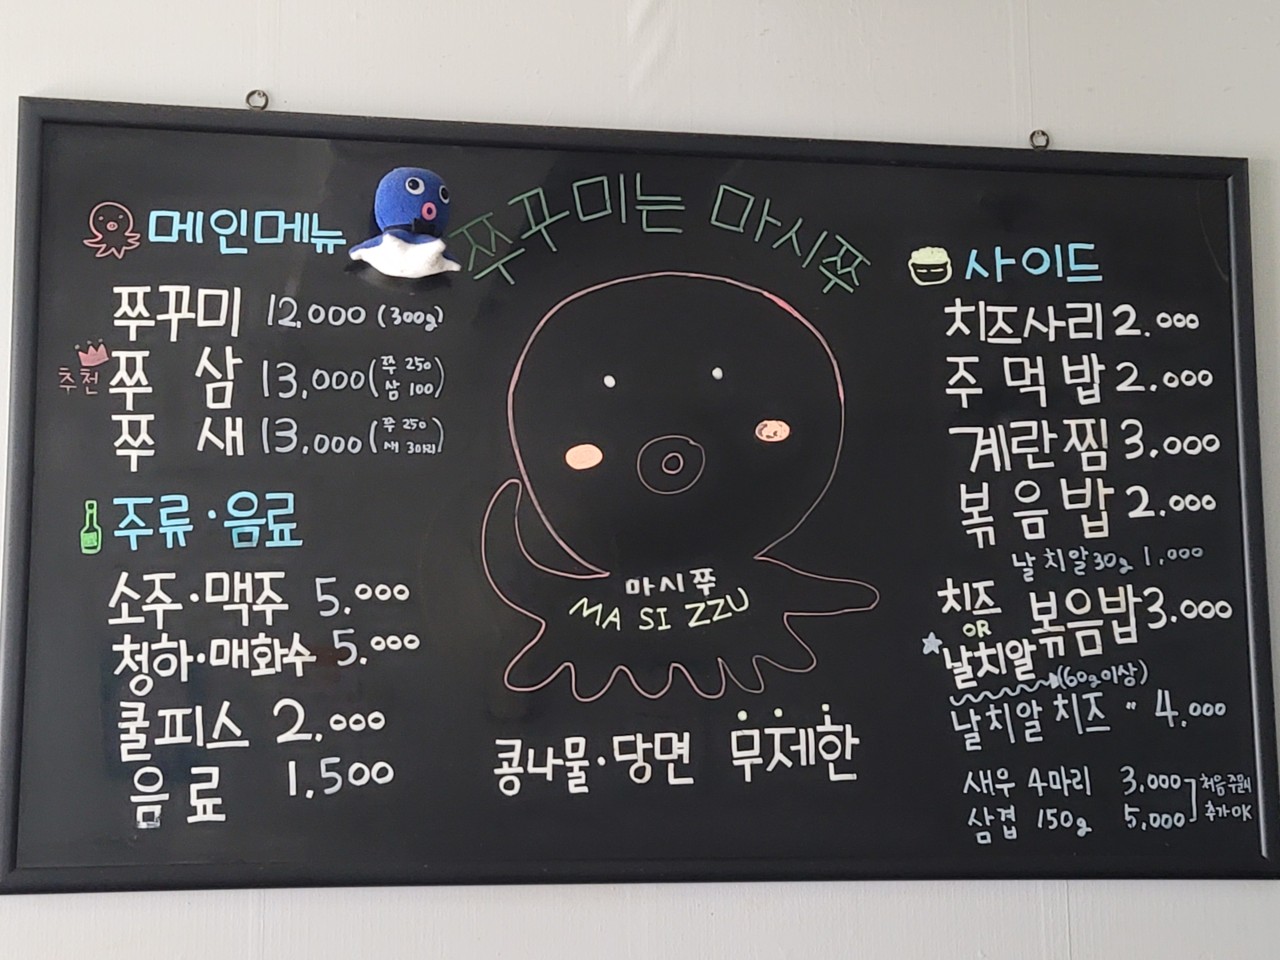 쭈꾸미는 마시쭈
메인메뉴
쭈꾸미 12,000 (300g)
추천 쭈 삼 13,000 (쭈 250 삼 100)
쭈 새 13,000 (쭈 250 새 3마리)
주류·음료
소주·맥주 5.000
청하·매화수 5.000
쿨피스 2.000
음료 1,500
마시쭈
MA SI ZZU
콩나물·당면 무제한
사이드
치즈사리 2.000
주먹밥 2.000
계란찜 3.000
볶음밥 2.000
날치알 30g 1,000
치즈 OR 날치알 볶음밥 3.000
(60g이상)
날치알 치즈 〃 4.000
새우 4마리 3,000
삼겹 150g 5,000
처음 주문시
추가 OK